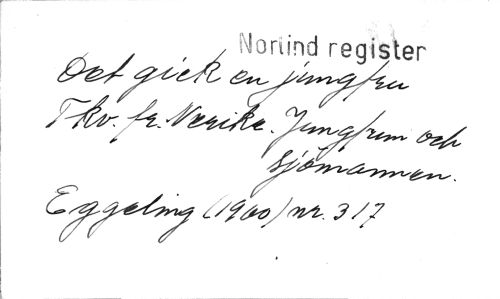 Norlind register
Det gick en jungfru
T kv. fr. Nerike. Jungfrun och
sjömannen.
Eggeling (1900) nr. 317